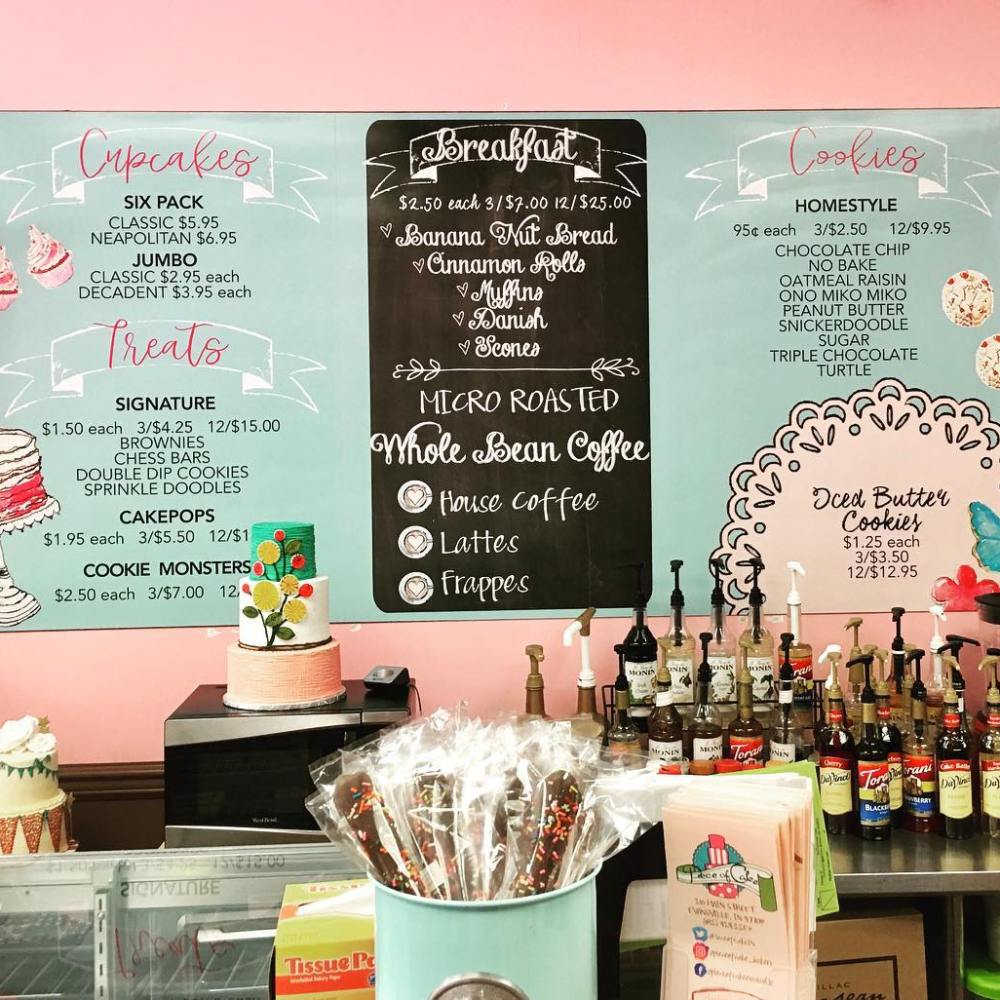 Cupcakes
SIX PACK
CLASSIC $5.95
NEAPOLITAN $6.95
JUMBO
CLASSIC $2.95 each
DECADENT $3.95 each
Treats
SIGNATURE
$1.50 each 3/$4.25 12/$15.00
BROWNIES
CHESS BARS
DOUBLE DIP COOKIES
SPRINKLE DOODLES
CAKEPOPS
$1.95 each 3/$5.50 12/$1
COOKIE MONSTERS
$2.50 each 3/$7.00 12
Breakfast
$2.50 each 3/$7.00 12/$25.00
Banana Nut Bread
Cinnamon Rolls
Muffins
Danish
Scones
MICRO ROASTED
Whole Bean Coffee
House Coffee
Lattes
Frappes
Cookies
HOMESTYLE
95¢ each 3/$2.50 12/$9.95
CHOCOLATE CHIP
NO BAKE
OATMEAL RAISIN
ONO MIKO MIKO
PEANUT BUTTER
SNICKERDOODLE
SUGAR
TRIPLE CHOCOLATE
TURTLE
Iced Butter
Cookies
$1.25 each
3/$3.50
12/$12.95
MONIN
MONIN
MONIN
MONIN
Torani
MONIN
MONIN
Torani
MONIN
Cherry
DaVinci
Torani
BLACKB
Torani
Cake Batter
DaVinci
Piece of Cake
MAIN STREET
Tissue Pa
SIGNATURE
Treats